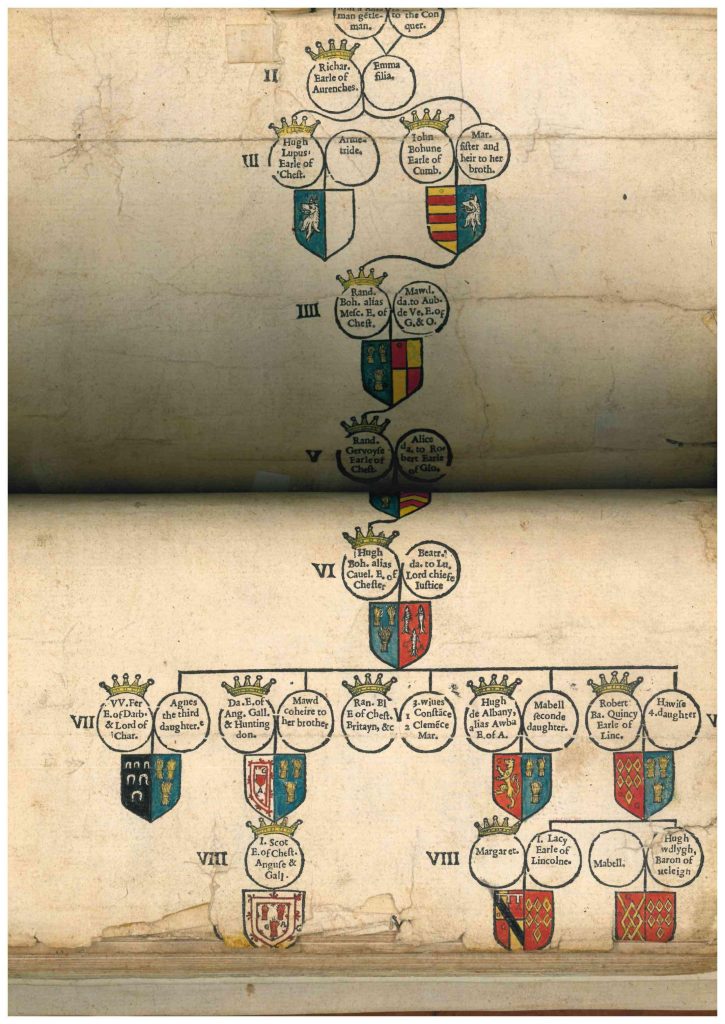 man gētle-
man.
to the Con
quer.
II
Richar.
Earle of
Aurenches.
Emma
filia.
III
Hugh
Lupus
Earle of
Chest.
Arme-
tride.
Iohn
Bohune
Earle of
Cumb.
Mar.
sister and
heir to her
broth.
IIII
Rand.
Boh. alias
Mesc. E. of
Chest.
Mawd.
da. to Aub-
de Ve. E. of
G. & O.
V
Rand.
Gervoyse
Earle of
Chest.
Alice
da. to Ro-
bert Earle
of Glo.
VI
Hugh
Boh. alias
Cauel. E. of
Chester
Beatr.
da. to Lu.
Lord chiefe
Iustice
VII
VV. Fer
E. of Darb.
& Lord of
Char.
Agnes
the third
daughter.
Da. E. of
Ang. Gall.
& Hunting
don.
Mawd
coheire to
her brother
Ran. Bl
E of Chest.
Britayn, &c
3. wiues
1 Constāce
2 Clemēce
Mar.
Hugh
de Albany,
alias Awba
E. of A.
Mabell
seconde
daughter.
Robert
Ba. Quincy
Earle of
Linc.
Hawise
4. daughter
V
VIII
I. Scot
E. of Chest.
Anguse &
Gall.
VIII
Margaret.
I. Lacy
Earle of
Lincolne.
Mabell.
Hugh
Baron of
V